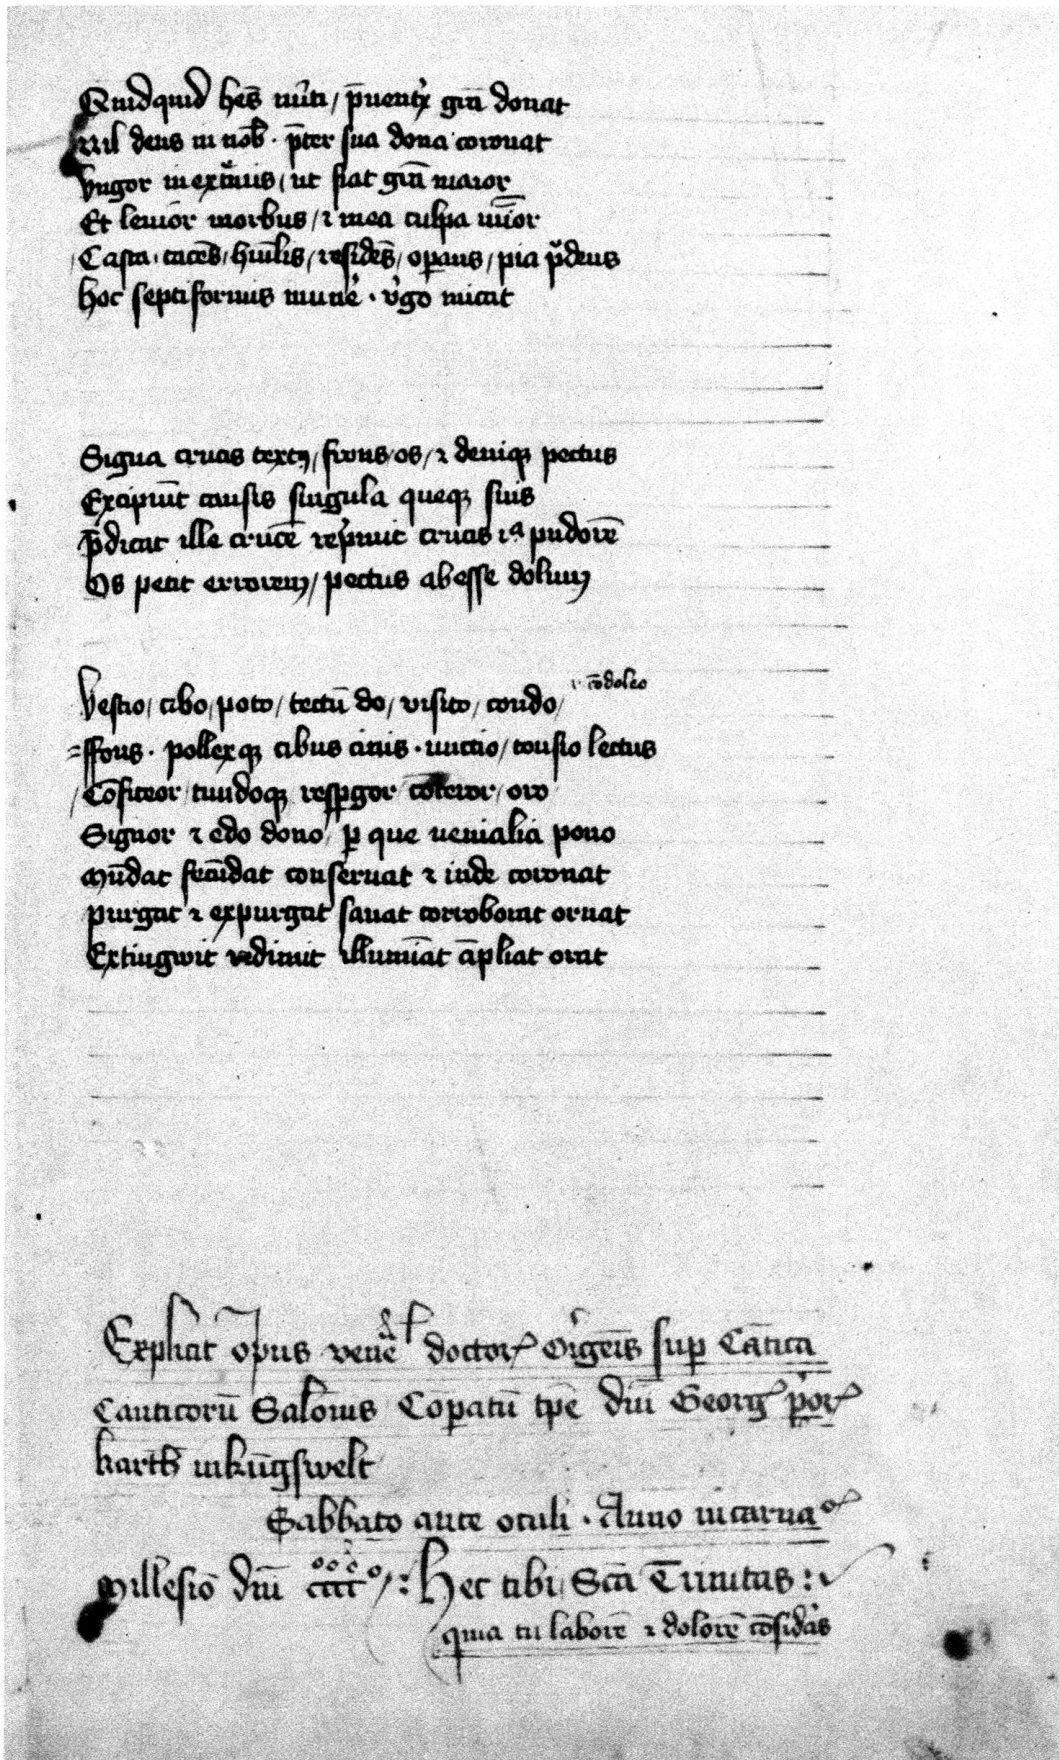 Quidquid hēs mīti / p̄uentꝝ grā donat
Nil deus in nob̄ · p̄ter sua dona coronat
Vngor in extᵉmis / ut fiat grā maior
Et leuior morbus / ⁊ mea culpa mīor
Casta · tacēs / hūilis / ⁊ residēs / oꝑans / pia prudens
hoc septiformis munē · v̓go micat
Signa crucis textꝰ / frons / os / ⁊ deniqꝫ pectus
Excipiūt causis singula queqꝫ suis
p̄dicat ille crucē rep̓mit crucis iᵃ pudorē
Os petit errorem / pectus abesse dolum
⁊ cōdoleo
Vestio / cibo / poto / tectū do / visito / condo /
=ffons · pollexqꝫ cibus cinis · unctio / tonsio lectus
/ Cōfiteor / tundoqꝫ resꝑgor cōteror / oro
Signor ⁊ edo dono / ꝑ que uenialia pono
Mūdat fecūdat conseruat ⁊ inde coronat
purgat ⁊ expurgat sanat corroborat ornat
Extingwit redimit illumīat āpliat orat
Explicit opus veneᵈl doctorꝭ Or̓genis sup Cātica
Canticorū Salōis Coꝑatū tpē dnī Georgꝭ p̓orꝭ
karth̄ in kūgswelt
Sabbato ante oculi · Anno incarnaᵒꝭ
Millesīo dnī cccc° / : Hec tibi Scā Trinitas :
quia tu laborē ⁊ dolorē cōsid̓as